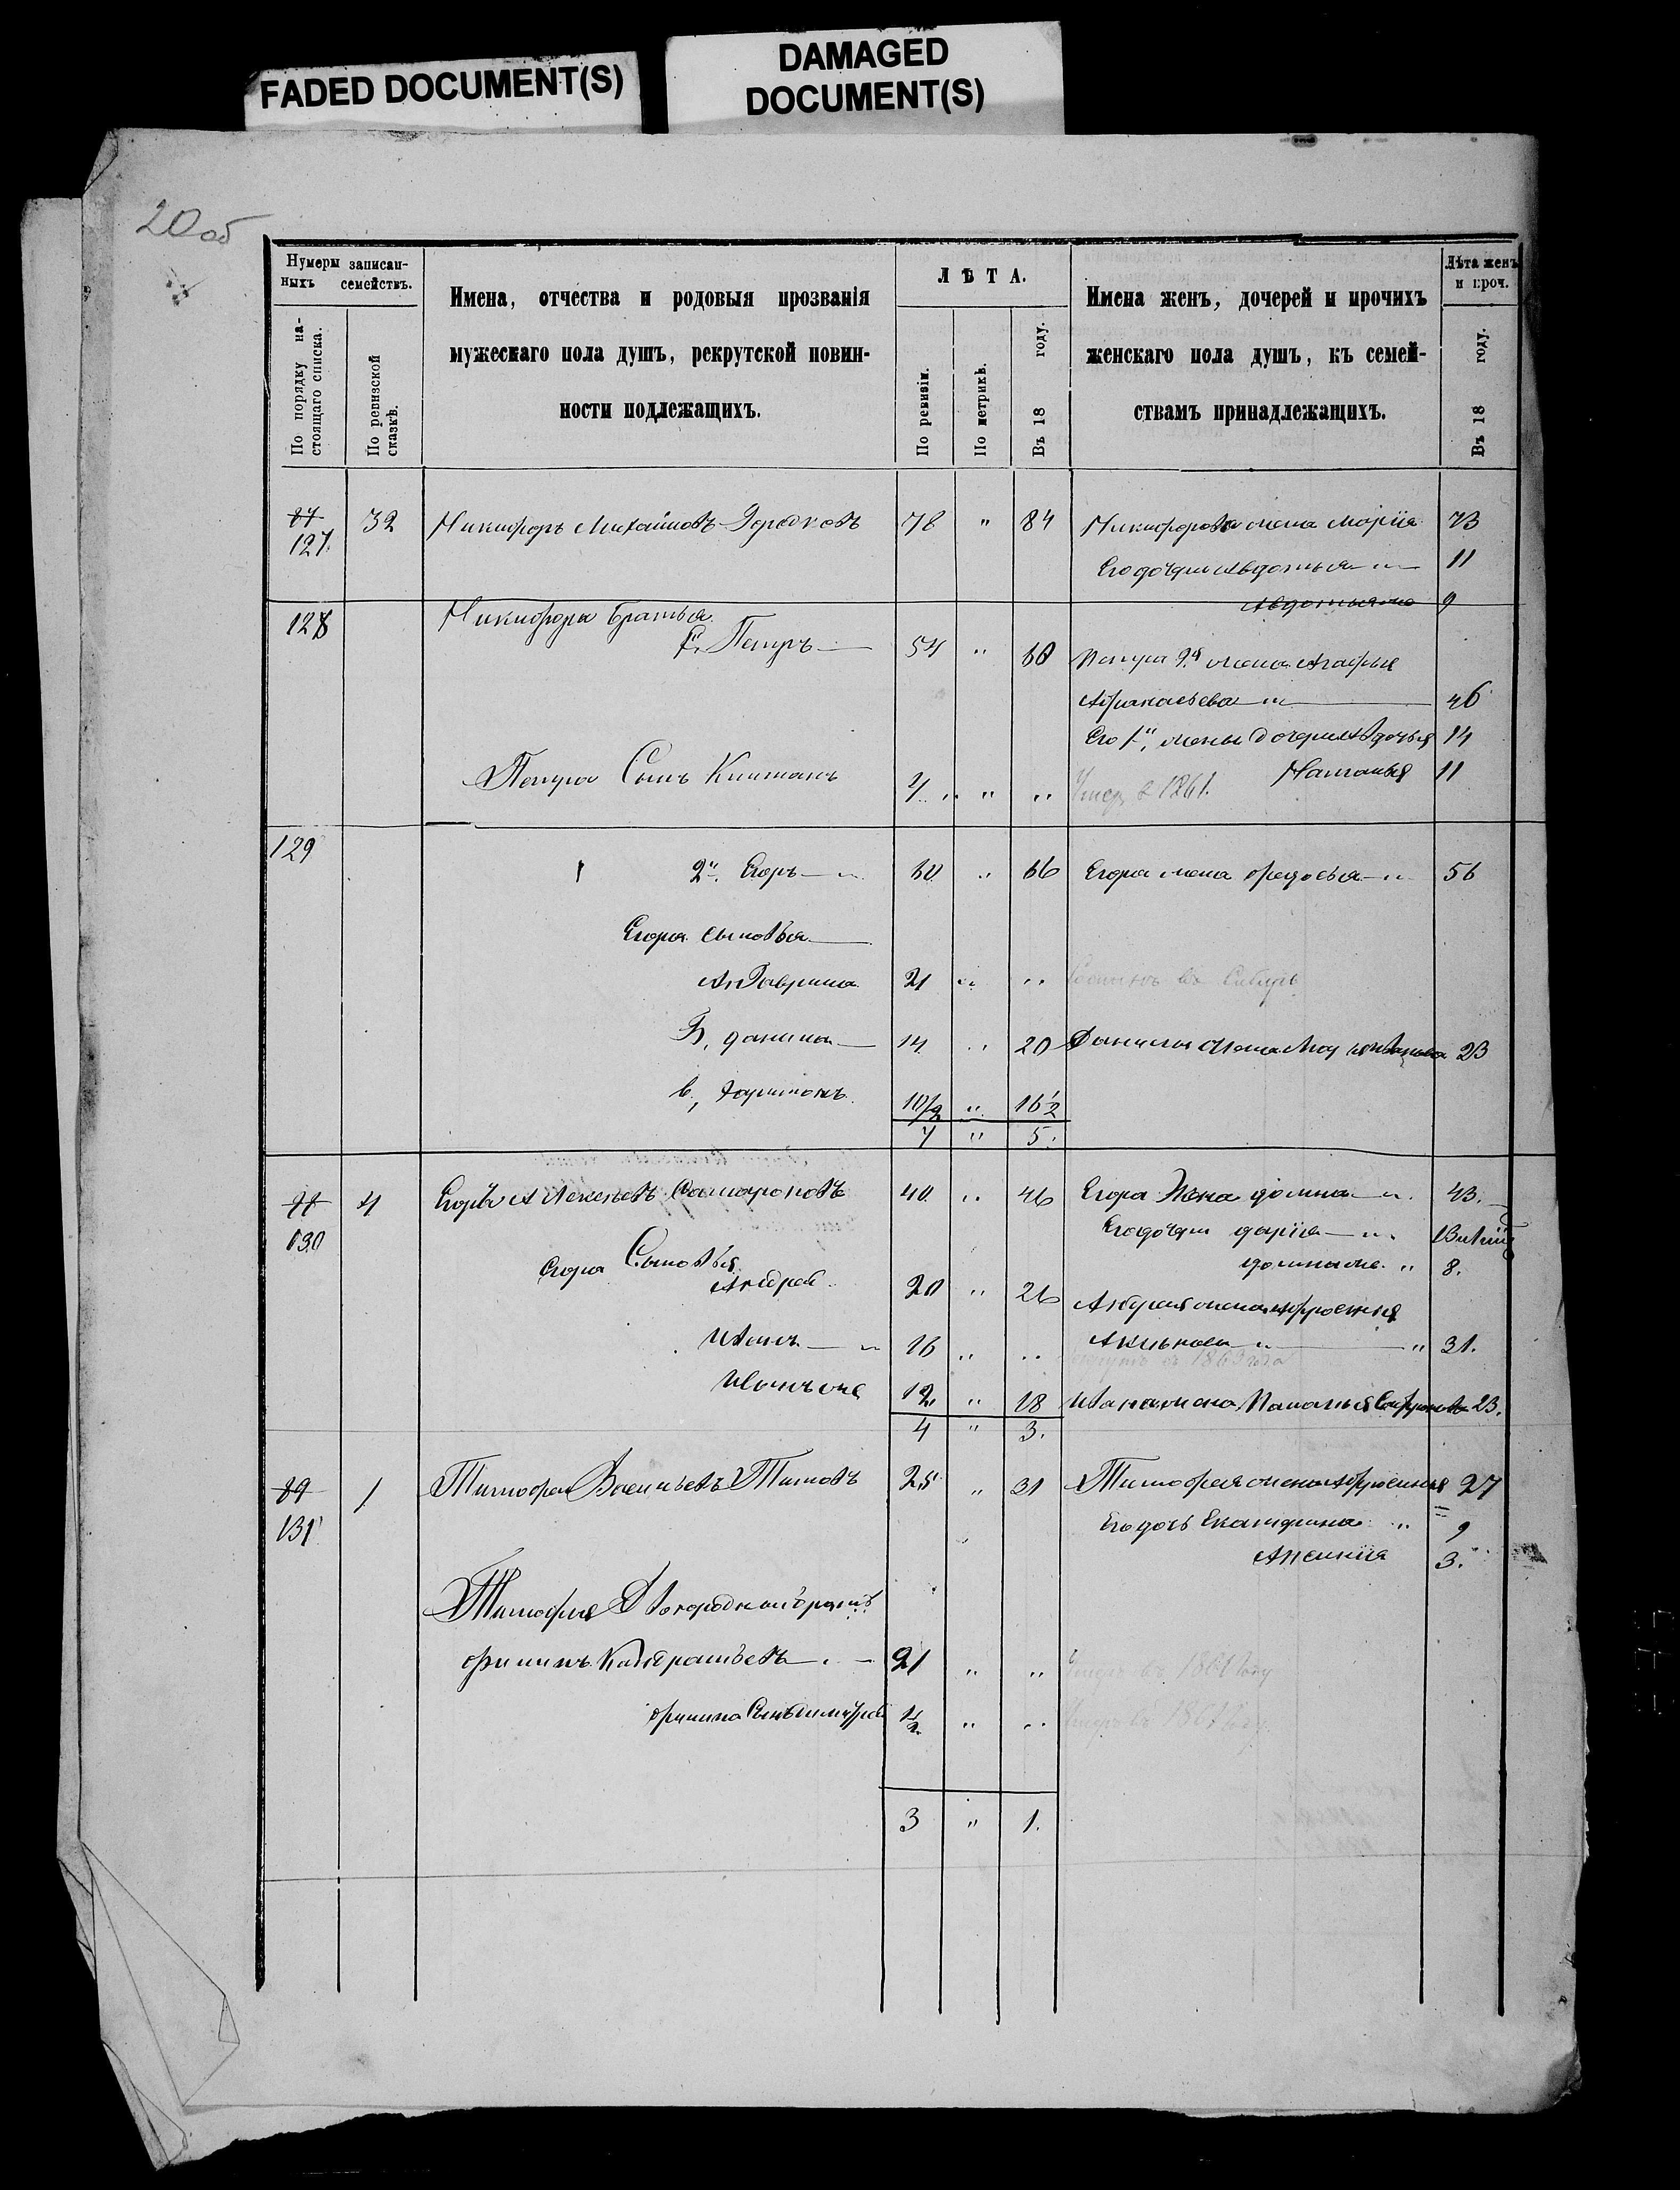 FADED DOCUMENT(S)
DAMAGED
DOCUMENT(S)
20 об
Нумеры записан-
ныхъ семействъ.
По порядку на-
стоящаго списка.
По ревизской
сказкѣ.
Имена, отчества и родовыя прозванія
мужескаго пола душъ, рекрутской повин-
ности подлежащихъ.
ЛѢТА.
По ревизіи.
По метрикѣ.
Въ 18 году.
Имена женъ, дочерей и прочихъ
женскаго пола душъ, къ семей-
ствамъ принадлежащихъ.
Лѣта женъ
и проч.
Въ 18 году.
127 32 Никифоръ Михайловъ 78 " 84 Никифорова жена Марія 73
Его дочери Авдотья 11
Авдотья же 9
128 Никифора братья
1. Петръ 54 " 60 Петра 2я жена Агафья
Афанасьева 46
Его 1й жены дочери Авдотья 14
Наталья 11
Петра Сынъ " " Умер в 1861.
129
2й Егоръ 60 " 66 Егора жена Федосья 56
Егора сыновья
А. Гаврила 21 " " въ Сибирь
Б, Данила 14 " 20 Данилы жена 23
в, Харитонъ 10 1/2 " 16 1/2
7 " 5.
130 4 Егоръ Алексеевъ 40 " 46 Егора Жена Домна 43.
Его дочери Дарія 13
Домна же " 8.
Егора Сыновья
Андрей 20 " 26 Андрея жена Афросинья
Иванъ 16 " " " 31.
въ 1863 года
Иванъ же 12 " 18 Ивана жена 23.
4 " 3.
89
131 1 Тимофей Васильевъ Титовъ 25 " 31 Тимофея жена Афросинья 27
Его дочь Екатерина " 9
Аксинія 3.
Тимофея Двоюродной братъ
Филипъ Кондратьевъ 21 " " Умеръ въ 1861 году
Филипа Сынъ Дмитрей 1/2 " " Умеръ въ 1861 году
3 " 1.